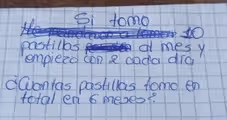 Si tomo
10
pastillas al mes y
empiezo con 2 cada día
¿Cuantas pastillas tomo en
total en 6 meses?